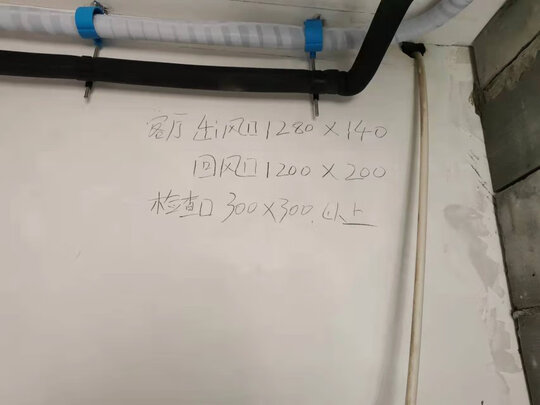 客厅 出风口 1280×140
回风口 1200×200
检查口 300×300 以上